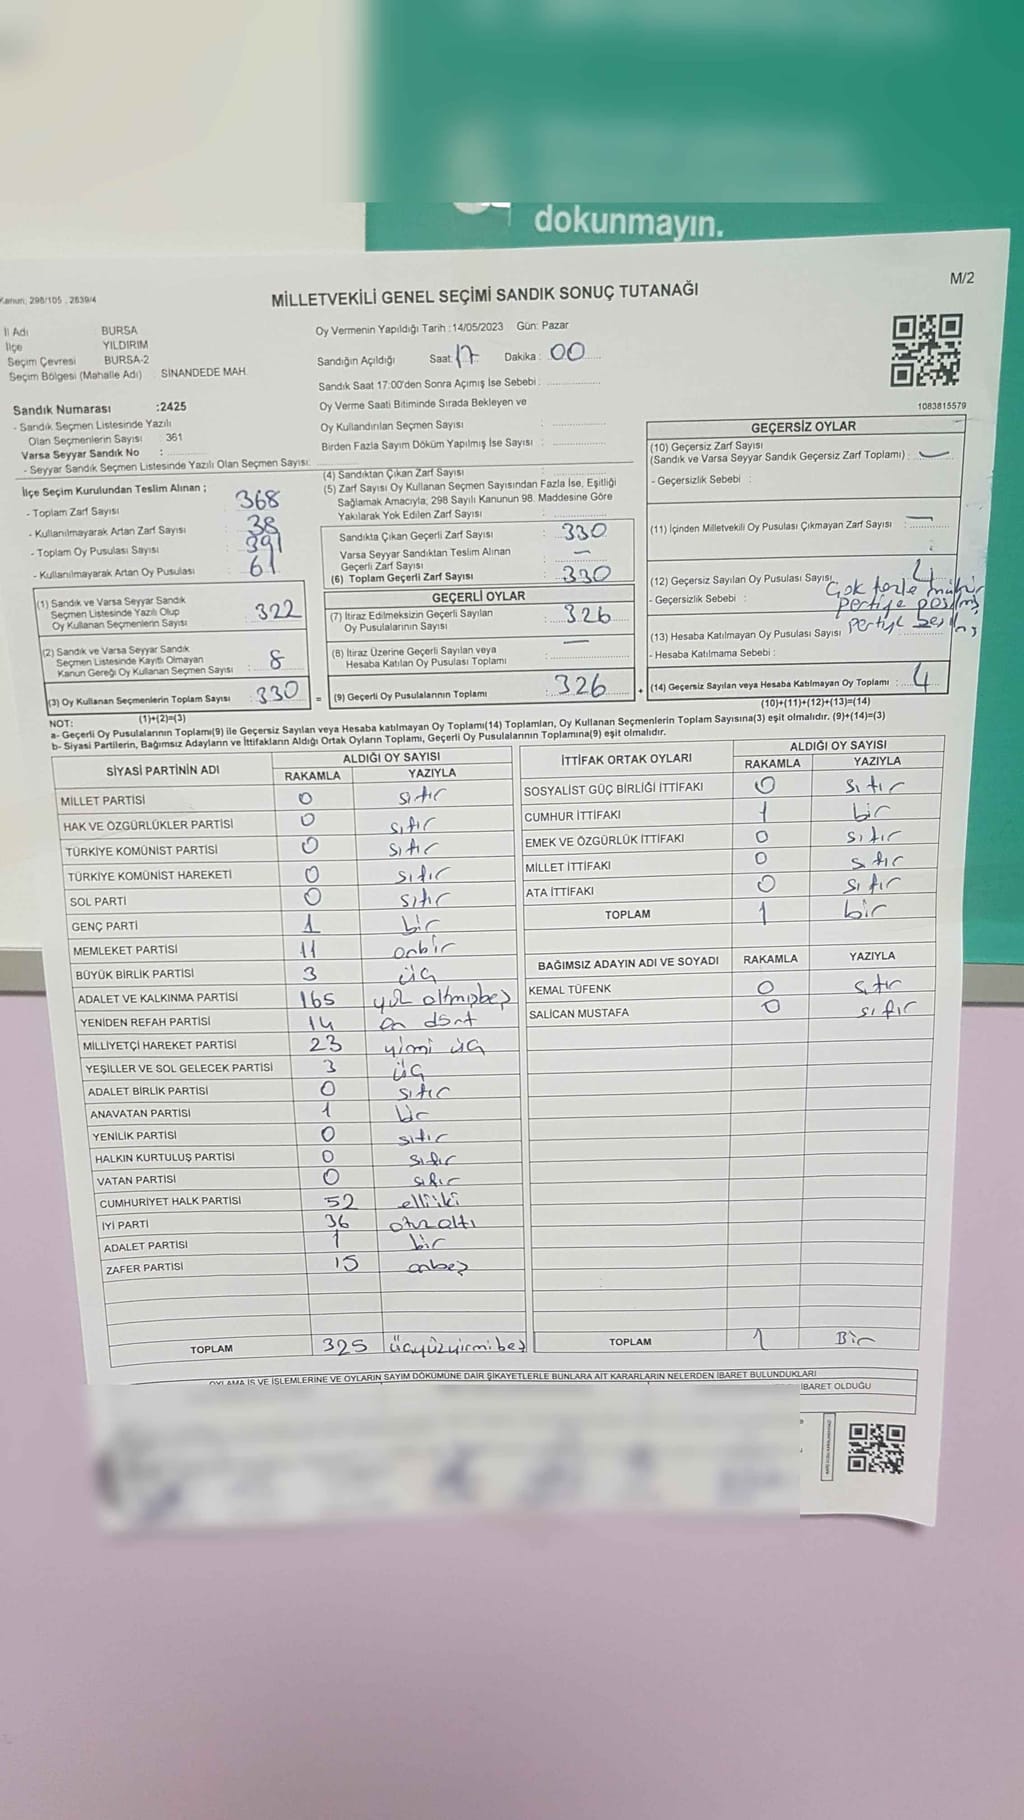 dokunmayın.
M/2
Kanun; 298/105 , 2839/4
MİLLETVEKİLİ GENEL SEÇİMİ SANDIK SONUÇ TUTANAĞI
İl Adı BURSA
İlçe YILDIRIM
Seçim Çevresi BURSA-2
Seçim Bölgesi (Mahalle Adı) SİNANDEDE MAH.
Sandık Numarası :2425
- Sandık Seçmen Listesinde Yazılı
Olan Seçmenlerin Sayısı : 361
Varsa Seyyar Sandık No :
- Seyyar Sandık Seçmen Listesinde Yazılı Olan Seçmen Sayısı:
Oy Vermenin Yapıldığı Tarih :14/05/2023 Gün: Pazar
Sandığın Açıldığı Saat: 17 Dakika : 00
Sandık Saat 17:00'den Sonra Açımış İse Sebebi :
Oy Verme Saati Bitiminde Sırada Bekleyen ve
Oy Kullandırılan Seçmen Sayısı :
Birden Fazla Sayım Döküm Yapılmış İse Sayısı :
1083815579
İlçe Seçim Kurulundan Teslim Alınan ;
- Toplam Zarf Sayısı : 368
- Kullanılmayarak Artan Zarf Sayısı : 38
- Toplam Oy Pusulası Sayısı : 391
- Kullanılmayarak Artan Oy Pusulası : 61
(1) Sandık ve Varsa Seyyar Sandık
Seçmen Listesinde Yazılı Olup
Oy Kullanan Seçmenlerin Sayısı : 322
(2) Sandık ve Varsa Seyyar Sandık
Seçmen Listesinde Kayıtlı Olmayan
Kanun Gereği Oy Kullanan Seçmen Sayısı : 8
(3) Oy Kullanan Seçmenlerin Toplam Sayısı : 330 =
(1)+(2)=(3)
(4) Sandıktan Çıkan Zarf Sayısı :
(5) Zarf Sayısı Oy Kullanan Seçmen Sayısından Fazla İse, Eşitliği
Sağlamak Amacıyla, 298 Sayılı Kanunun 98. Maddesine Göre
Yakılarak Yok Edilen Zarf Sayısı :
Sandıkta Çıkan Geçerli Zarf Sayısı : 330
Varsa Seyyar Sandıktan Teslim Alınan
Geçerli Zarf Sayısı : —
(6) Toplam Geçerli Zarf Sayısı : 330
GEÇERLİ OYLAR
(7) İtiraz Edilmeksizin Geçerli Sayılan
Oy Pusulalarının Sayısı : 326
(8) İtiraz Üzerine Geçerli Sayılan veya
Hesaba Katılan Oy Pusulası Toplamı : —
(9) Geçerli Oy Pusulalarının Toplamı : 326 +
GEÇERSİZ OYLAR
(10) Geçersiz Zarf Sayısı
(Sandık ve Varsa Seyyar Sandık Geçersiz Zarf Toplamı) : —
- Geçersizlik Sebebi :
(11) İçinden Milletvekili Oy Pusulası Çıkmayan Zarf Sayısı : —
(12) Geçersiz Sayılan Oy Pusulası Sayısı : 4
- Geçersizlik Sebebi : Çok fazla mühür
partiye
(13) Hesaba Katılmayan Oy Pusulası Sayısı
- Hesaba Katılmama Sebebi :
(14) Geçersiz Sayılan veya Hesaba Katılmayan Oy Toplamı : 4
(10)+(11)+(12)+(13)=(14)
NOT:
a- Geçerli Oy Pusulalarının Toplamı(9) ile Geçersiz Sayılan veya Hesaba katılmayan Oy Toplamı(14) Toplamları, Oy Kullanan Seçmenlerin Toplam Sayısına(3) eşit olmalıdır. (9)+(14)=(3)
b- Siyasi Partilerin, Bağımsız Adayların ve İttifakların Aldığı Ortak Oyların Toplamı, Geçerli Oy Pusulalarının Toplamına(9) eşit olmalıdır.
SİYASİ PARTİNİN ADI ALDIĞI OY SAYISI
RAKAMLA YAZIYLA
MİLLET PARTİSİ 0 sıfır
HAK VE ÖZGÜRLÜKLER PARTİSİ 0 sıfır
TÜRKİYE KOMÜNİST PARTİSİ 0 sıfır
TÜRKİYE KOMÜNİST HAREKETİ 0 sıfır
SOL PARTİ 0 sıfır
GENÇ PARTİ 1 bir
MEMLEKET PARTİSİ 11 onbir
BÜYÜK BİRLİK PARTİSİ 3 üç
ADALET VE KALKINMA PARTİSİ 165 yüz altmışbeş
YENİDEN REFAH PARTİSİ 14 on dört
MİLLİYETÇİ HAREKET PARTİSİ 23 yirmi üç
YEŞİLLER VE SOL GELECEK PARTİSİ 3 üç
ADALET BİRLİK PARTİSİ 0 sıfır
ANAVATAN PARTİSİ 1 bir
YENİLİK PARTİSİ 0 sıfır
HALKIN KURTULUŞ PARTİSİ 0 sıfır
VATAN PARTİSİ 0 sıfır
CUMHURİYET HALK PARTİSİ 52 elliiki
İYİ PARTİ 36 otuzaltı
ADALET PARTİSİ 1 bir
ZAFER PARTİSİ 15 onbeş
TOPLAM 325 üçyüzyirmibeş
İTTİFAK ORTAK OYLARI ALDIĞI OY SAYISI
RAKAMLA YAZIYLA
SOSYALİST GÜÇ BİRLİĞİ İTTİFAKI 0 sıfır
CUMHUR İTTİFAKI 1 bir
EMEK VE ÖZGÜRLÜK İTTİFAKI 0 sıfır
MİLLET İTTİFAKI 0 sıfır
ATA İTTİFAKI 0 sıfır
TOPLAM 1 bir
BAĞIMSIZ ADAYIN ADI VE SOYADI RAKAMLA YAZIYLA
KEMAL TÜFENK 0 sıfır
SALİCAN MUSTAFA 0 sıfır
TOPLAM 1 Bir
OYLAMA İŞ VE İŞLEMLERİNE VE OYLARIN SAYIM DÖKÜMÜNE DAİR ŞİKAYETLERLE BUNLARA AİT KARARLARIN NELERDEN İBARET BULUNDUKLARI
İBARET OLDUĞU